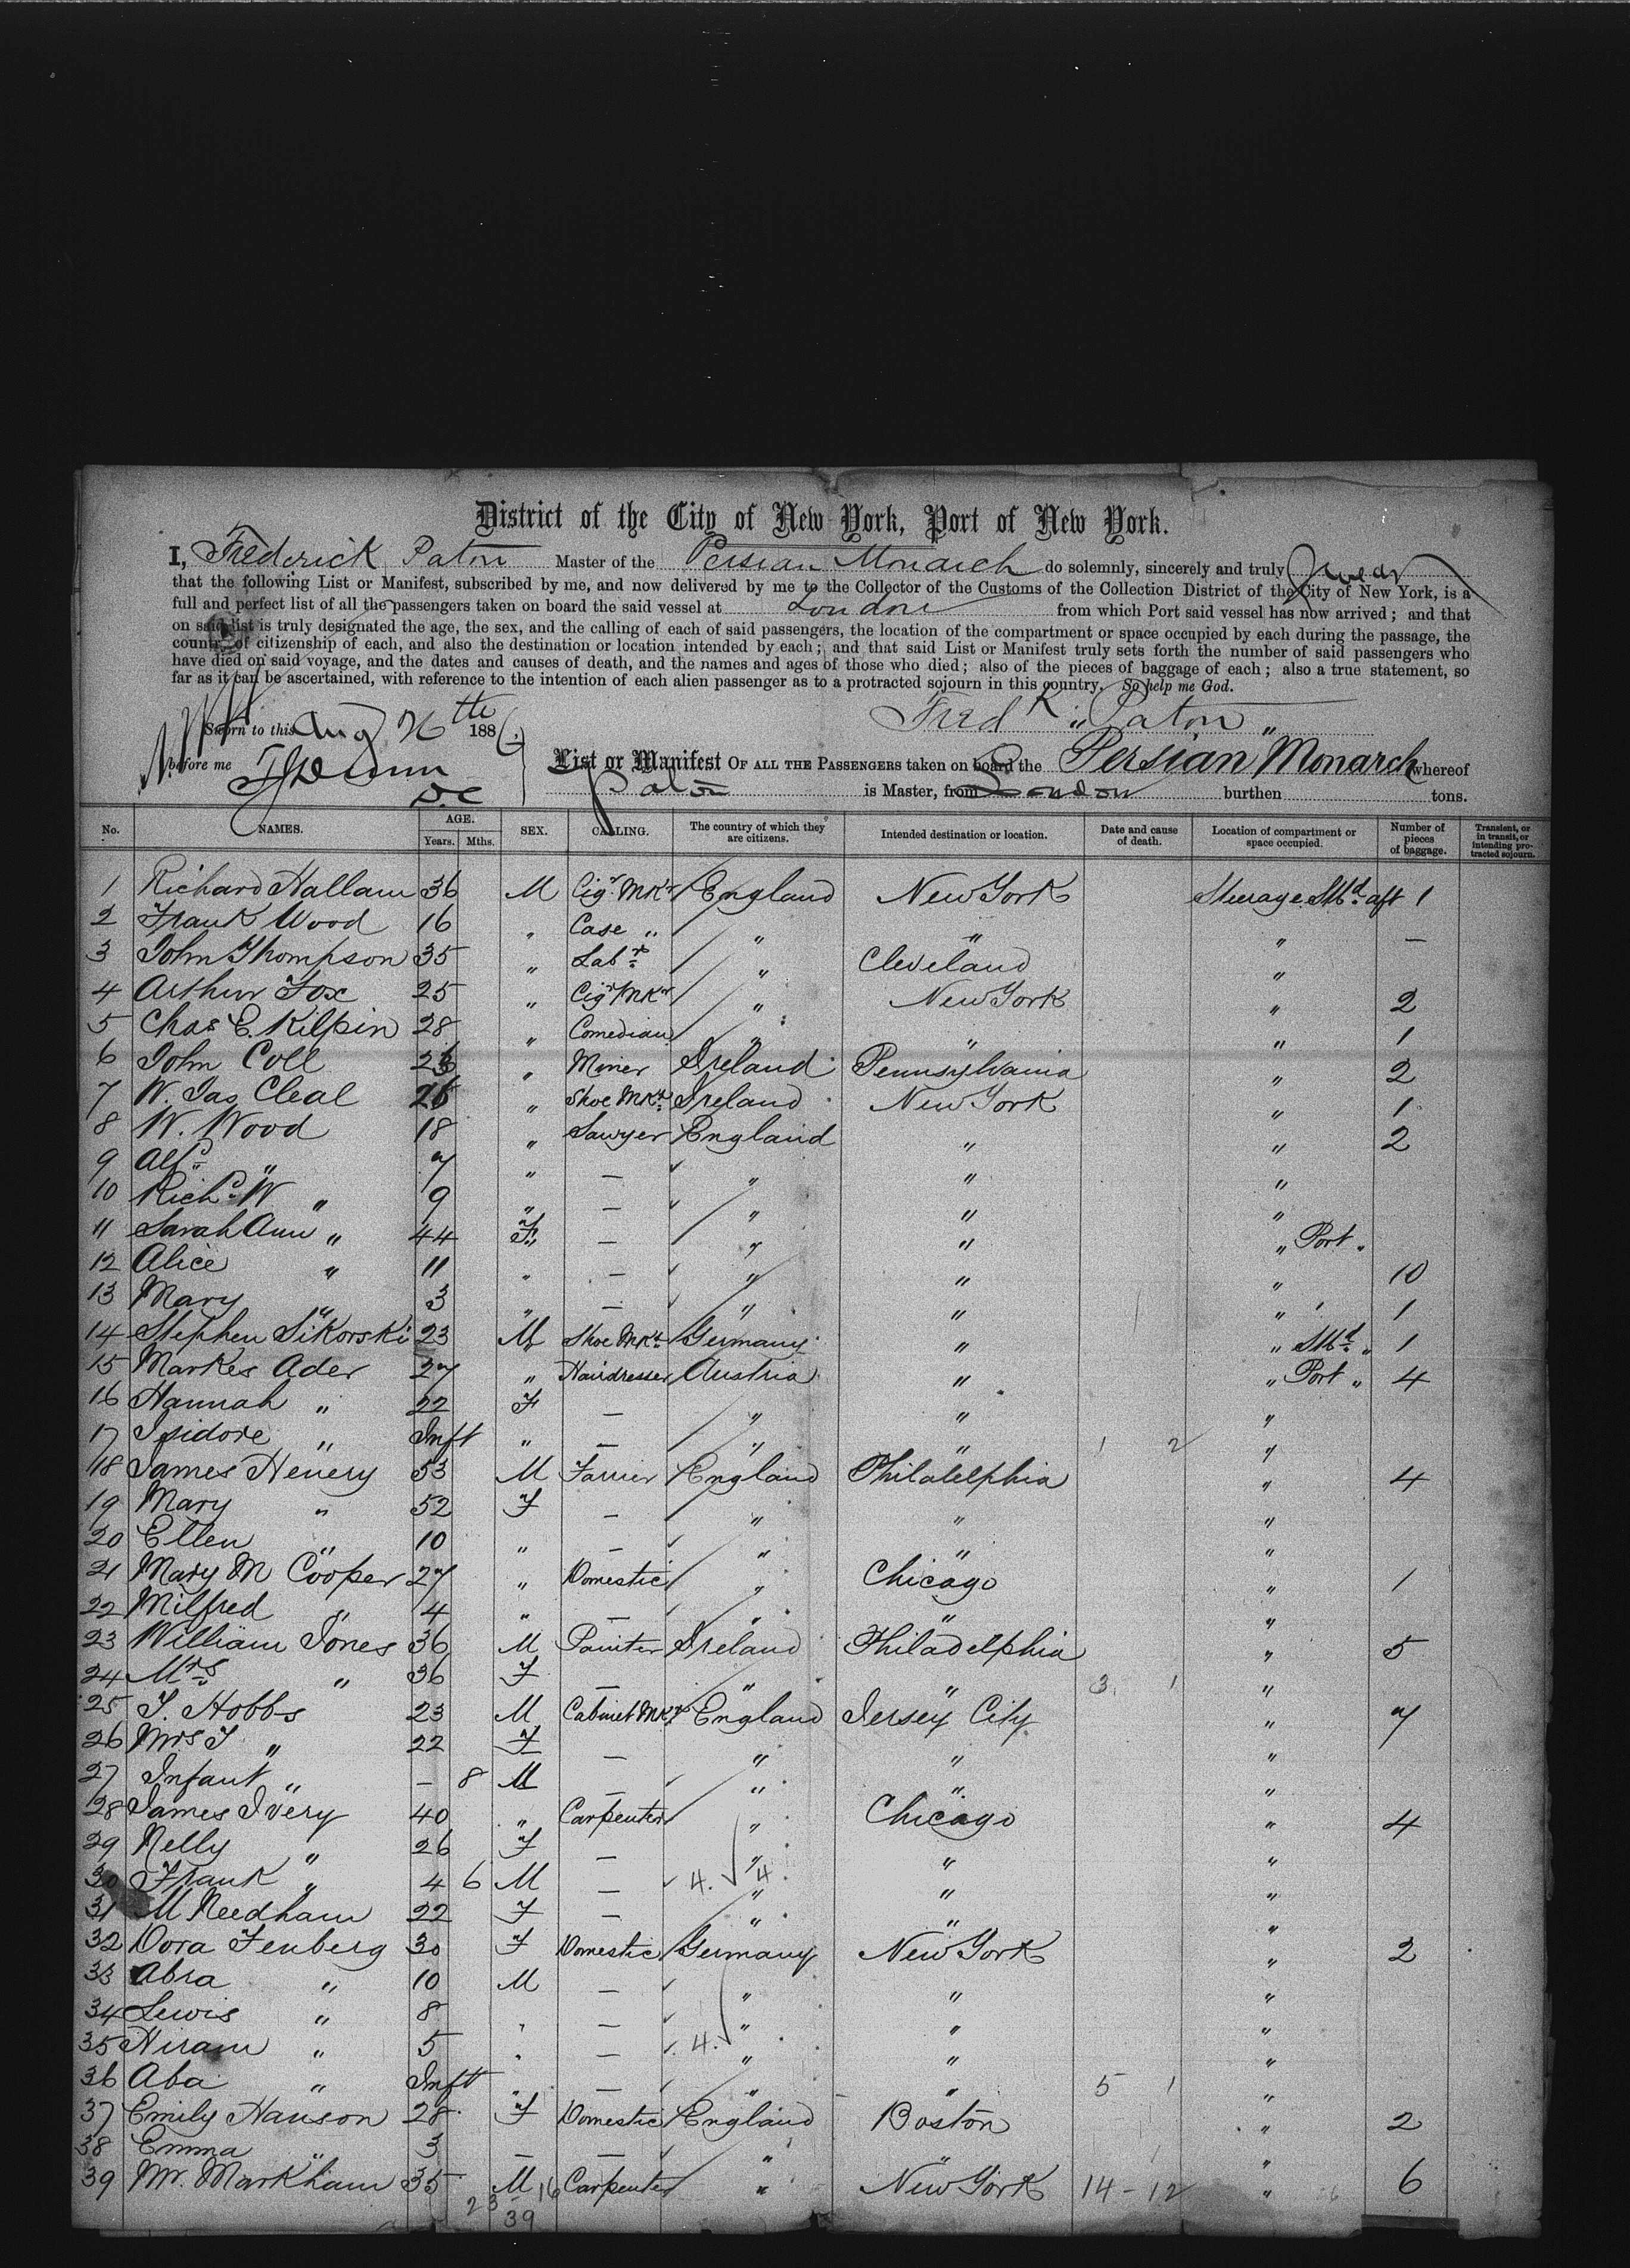 District of the City of New York, Port of New York.
I, Frederick Paton Master of the Persian Monarch do solemnly, sincerely and truly swear
that the following List or Manifest, subscribed by me, and now delivered by me to the Collector of the Customs of the Collection District of the City of New York, is a
full and perfect list of all the passengers taken on board the said vessel at London from which Port said vessel has now arrived; and that
on said list is truly designated the age, the sex, and the calling of each of said passengers, the location of the compartment or space occupied by each during the passage, the
country of citizenship of each, and also the destination or location intended by each; and that said List or Manifest truly sets forth the number of said passengers who
have died on said voyage, and the dates and causes of death, and the names and ages of those who died; also of the pieces of baggage of each; also a true statement, so
far as it can be ascertained, with reference to the intention of each alien passenger as to a protracted sojourn in this country. So help me God.
Sworn to this Aug 26th 1886 Fredk Paton
before me
List or Manifest OF ALL THE PASSENGERS taken on board the Persian Monarch whereof
Paton is Master, from London burthen tons.
No. NAMES. AGE. Years. Mths. SEX. CALLING. The country of which they are citizens. Intended destination or location. Date and cause of death. Location of compartment or space occupied. Number of pieces of baggage. Transient, or in transit, or intending protracted sojourn.
1 Richard Hallam 36 M Cigr Mkr England New York Steerage Stbd aft 1
2 Frank Wood 16 " Case " " " " —
3 John Thompson 35 " Labr " Cleveland "
4 Arthur Fox 25 " Cigr Mkr " New York " 2
5 Chas E. Kilpin 28 " Comedian " " " 1
6 John Coll 23 " Miner Ireland Pennsylvania " 2
7 W. Jas Cleal 26 " Shoe Mkr Ireland New York " 1
8 W. Wood 18 " Sawyer England " " 2
9 Alfd " 7 " — " " "
10 Richd W " 9 " — " " "
11 Sarah Ann " 44 F — " " " Port "
12 Alice " 11 " — " " " 10
13 Mary " 3 " — " " " 1
14 Stephen Sikorski 23 M Shoe Mkr Germany " " Stbd " 1
15 Markes Ader 27 " Hairdresser Austria " " Port " 4
16 Hannah " 22 F — " " "
17 Isidore " Inft " — " " 1 2 "
18 James Henery 53 M Farrier England Philadelphia " 4
19 Mary " 52 F — " " "
20 Ellen " 10 " — " " "
21 Mary M Cooper 27 " Domestic " Chicago " 1
22 Milfred " 4 " — " " "
23 William Jones 36 M Painter Ireland Philadelphia " 5
24 Mrs " 36 F — " " 3 1 "
25 T. Hobbs 23 M Cabinet Mkr England Jersey City " 7
26 Mrs T " 22 F — " " "
27 Infant " — 8 M — " " "
28 James Ivery 40 " Carpenter " Chicago " 4
29 Nelly " 26 F — " " "
30 Frank " 4 6 M — 4. 4 " " "
31 M Needham 22 F — " " "
32 Dora Fenberg 30 F Domestic Germany New York " 2
33 Abra " 10 M — " " "
34 Lewis " 8 " — " " "
35 Hiram " 5 " — 4. " " "
36 Aba " Inft " — " " 5 1 "
37 Emily Hanson 28 F Domestic England Boston " 2
38 Emma " 3 — — " " "
39 Mr. Markham 35 M 16 Carpenter " New York 14 - 12 " 6
23
39